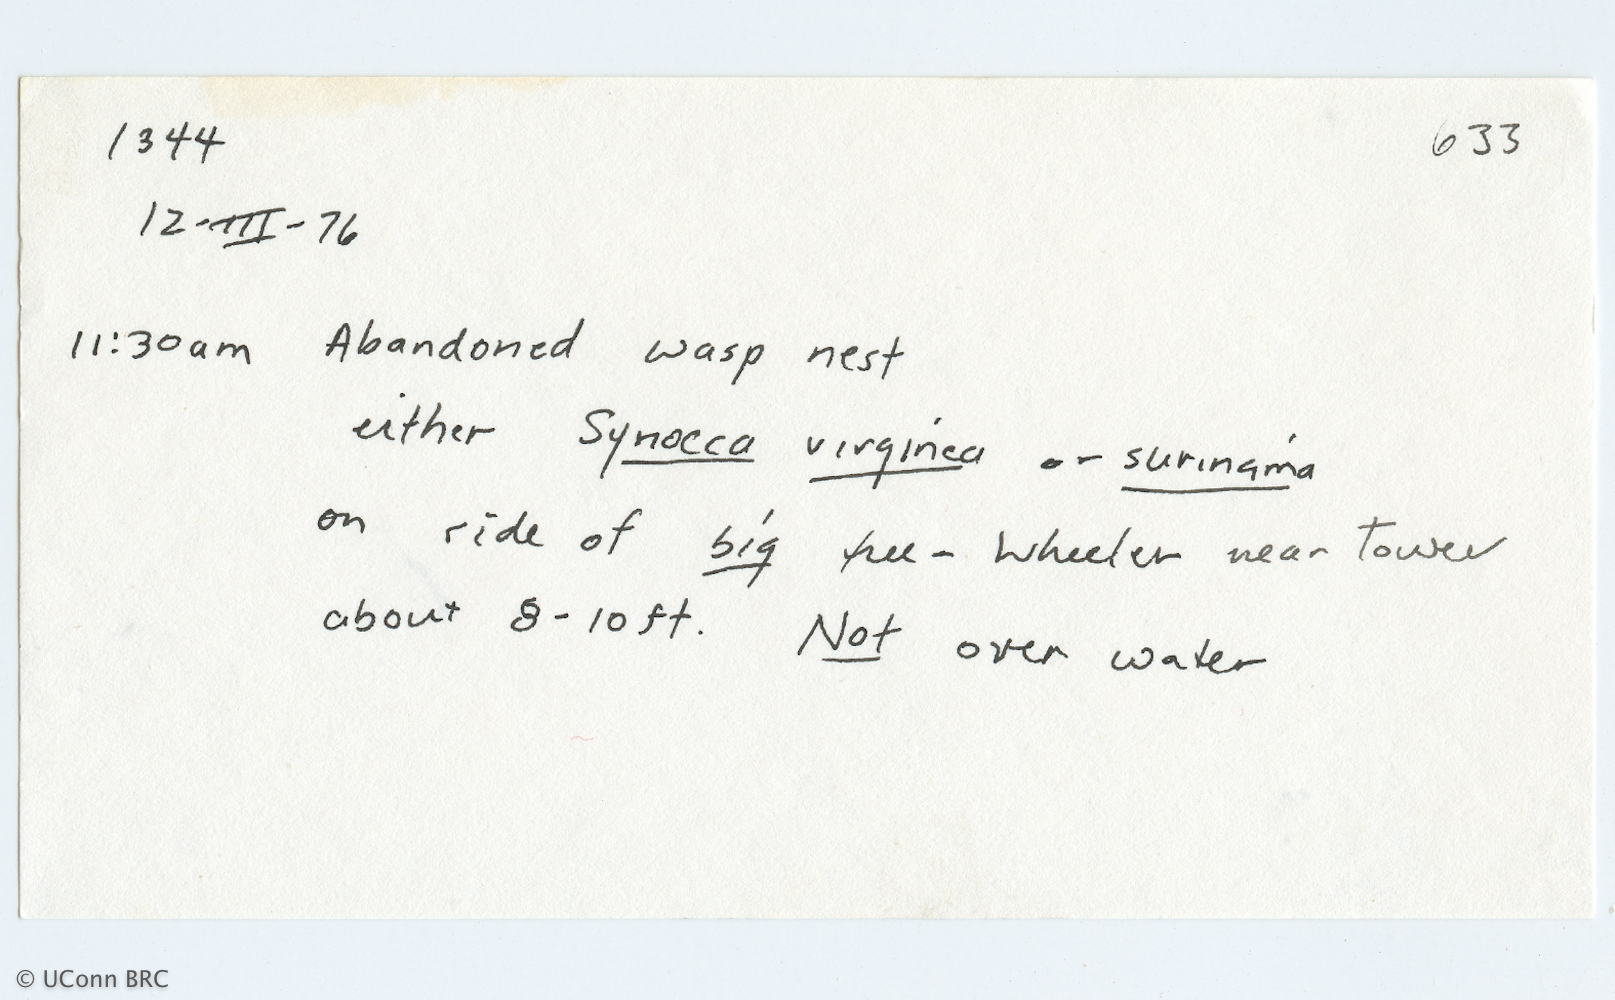 1344 633
12-III-76
11:30am Abandoned wasp nest
either Synoecca virginea or surinama
on side of big tree - Wheeler near Tower
about 8-10 ft. Not over water
© UConn BRC